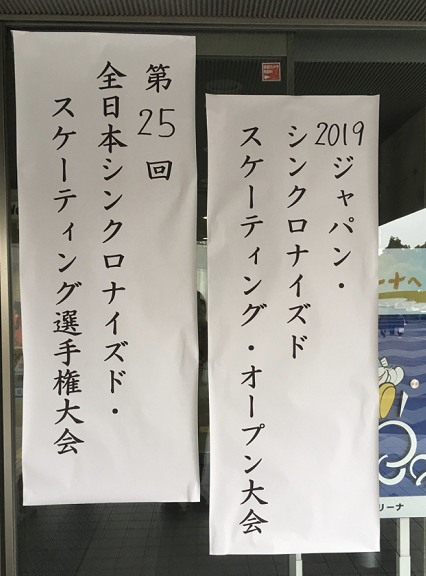 第25回
全日本シンクロナイズド・
スケーティング選手権大会
2019ジャパン・
シンクロナイズド
スケーティング・オープン大会
ーナへ
リーナ